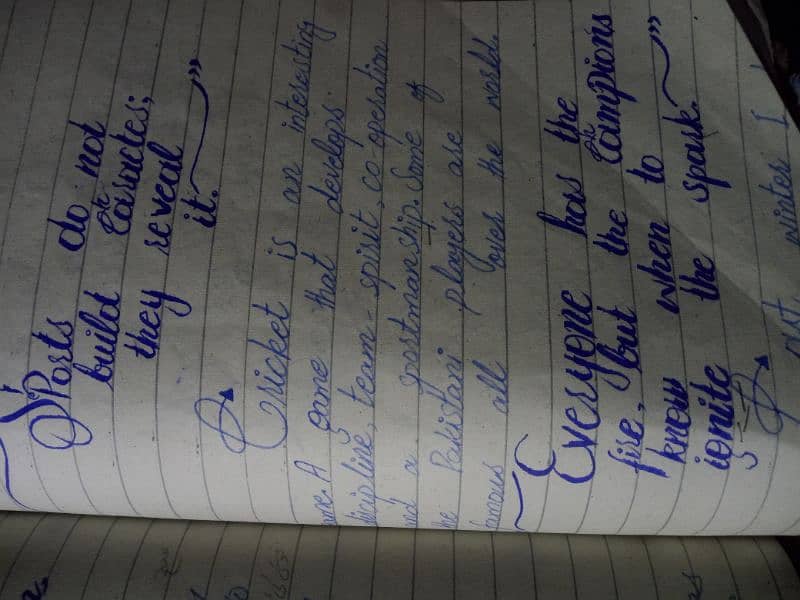 Sports do not
build charactes;
they reveal
it."
Cricket is an interesting
game. A game that develops
discipline, team-spirit, co operation
and a sportmanship. Some of
the Pakistani players are
famous all over the world.
Everyone has the
fire, but the champions
know when to
ignite the spark."
winter I